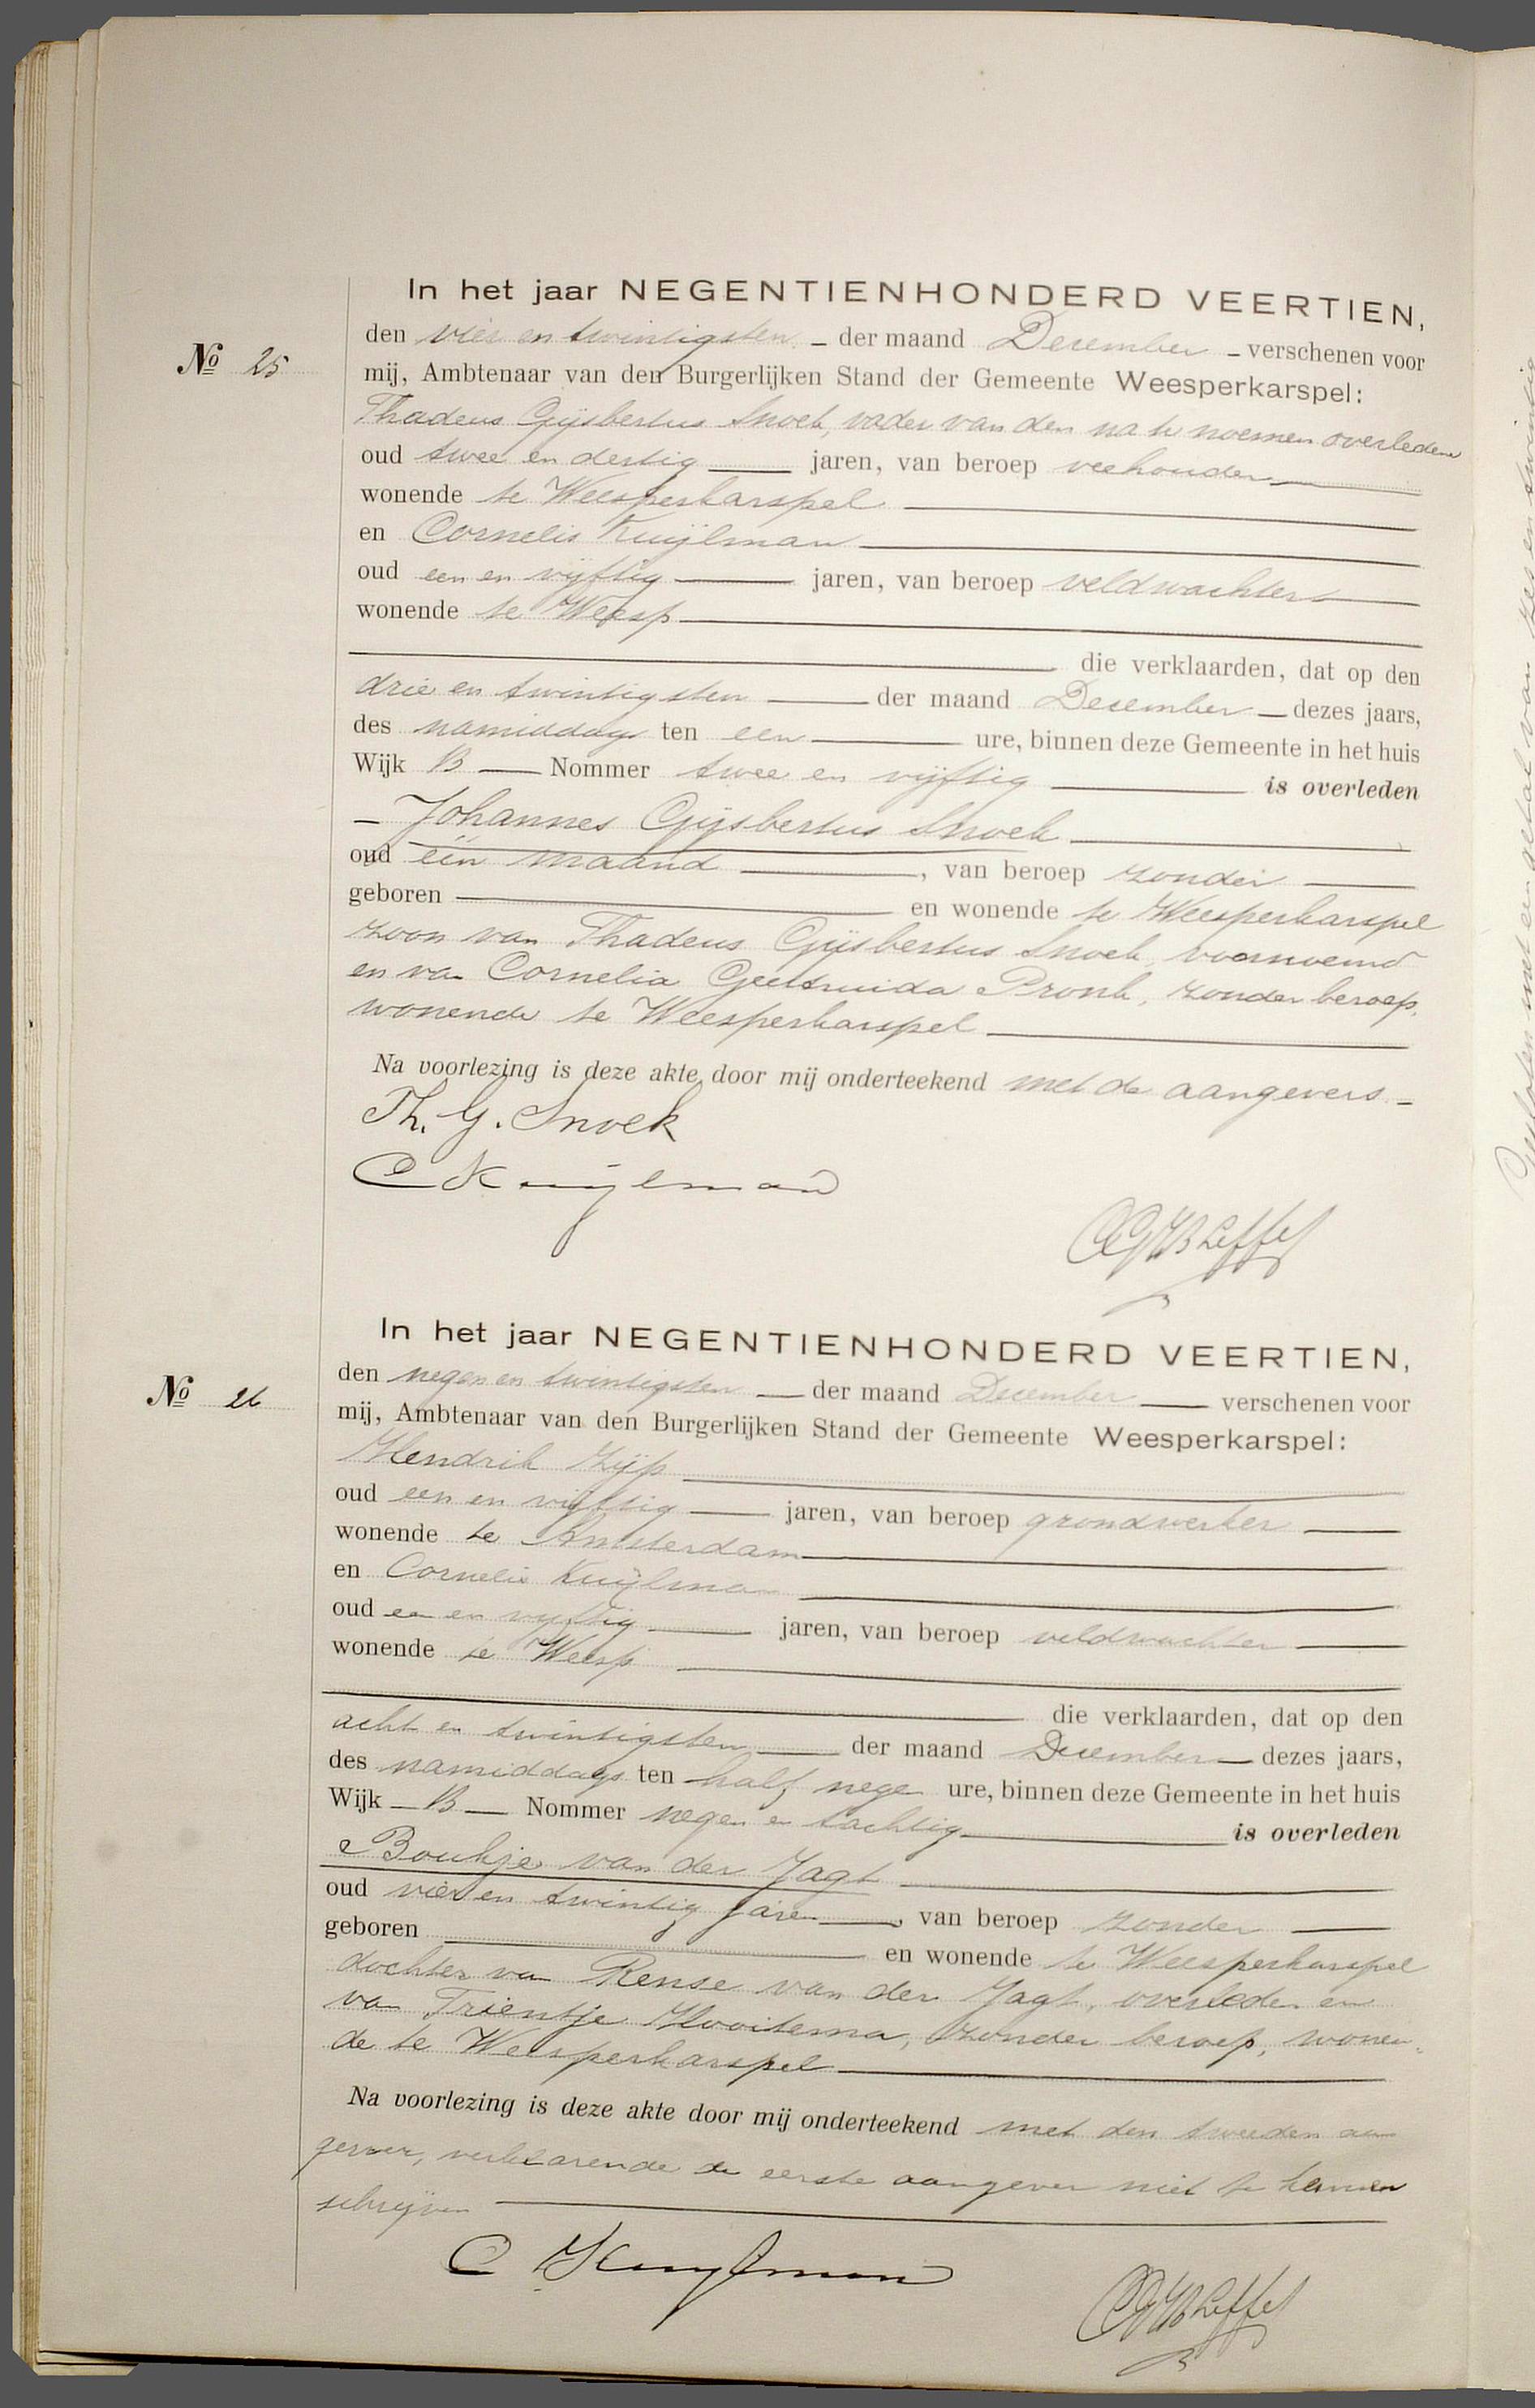 In het jaar NEGENTIENHONDERD VEERTIEN,
Nº 25
den vier en twintigsten – der maand December – verschenen voor
mij, Ambtenaar van den Burgerlijken Stand der Gemeente Weesperkarspel:
Thadeus Gijsbertus Snoek, vader van den na te noemen overledene
oud twee en dertig — jaren, van beroep veehouder —
wonende te Weesperkarspel —
en Cornelis Kuijlman —
oud een en vijftig — jaren, van beroep veldwachter —
wonende te Weesp —
— die verklaarden, dat op den
drie en twintigsten — der maand December — dezes jaars,
des namiddags ten een — ure, binnen deze Gemeente in het huis
Wijk B — Nommer twee en vijftig — is overleden
– Johannes Gijsbertus Snoek —
oud één maand —, van beroep zonder —
geboren — en wonende te Weesperkarspel
zoon van Thadeus Gijsbertus Snoek, voornoemd
en van Cornelia Geertruida Pronk, zonder beroep,
wonende te Weesperkarspel —
Na voorlezing is deze akte door mij onderteekend met de aangevers. –
Th. G. Snoek
C Kuijlman
In het jaar NEGENTIENHONDERD VEERTIEN,
Nº 26
den negen en twintigsten — der maand December — verschenen voor
mij, Ambtenaar van den Burgerlijken Stand der Gemeente Weesperkarspel:
Hendrik Zijp —
oud een en vijftig — jaren, van beroep grondwerker —
wonende te Amsterdam —
en Cornelis Kuijlman —
oud een en vijftig — jaren, van beroep veldwachter —
wonende te Weesp —
— die verklaarden, dat op den
acht en twintigsten — der maand December — dezes jaars,
des namiddags ten half negen ure, binnen deze Gemeente in het huis
Wijk – B – Nommer negen en tachtig — is overleden
Boukje van der Jagt —
oud vier en twintig jaren —, van beroep zonder —
geboren — en wonende te Weesperkarspel
dochter van Rense van der Jagt, overleden en
van Trientje Hooitema, zonder beroep, wonen-
de te Weesperkarspel —
Na voorlezing is deze akte door mij onderteekend met den tweeden aan
gever, verklarende de eerste aangever niet te kunnen
schrijven —
C Kuijlman